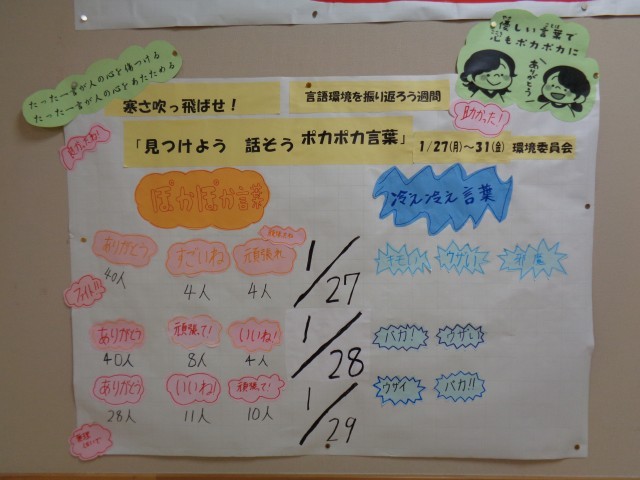 たった一言が人の心を傷つける
たった一言が人の心をあたためる
優しい言葉で
心もポカポカに
ありがとう
寒さ吹っ飛ばせ！
言語環境を振り返ろう週間
助かった！
良かったね！
「見つけよう 話そう ポカポカ言葉」 1/27(月)～31(金) 環境委員会
ぽかぽか言葉
冷え冷え言葉
ありがとう すごいね 頑張れ
40人 4人 4人
1/27
キモい ウザい 邪魔
ファイト!!
ありがとう 頑張って! いいね!
40人 8人 4人
1/28
バカ! ウザい
ありがとう いいね! 頑張って!
28人 11人 10人
1/29
ウザイ バカ!!